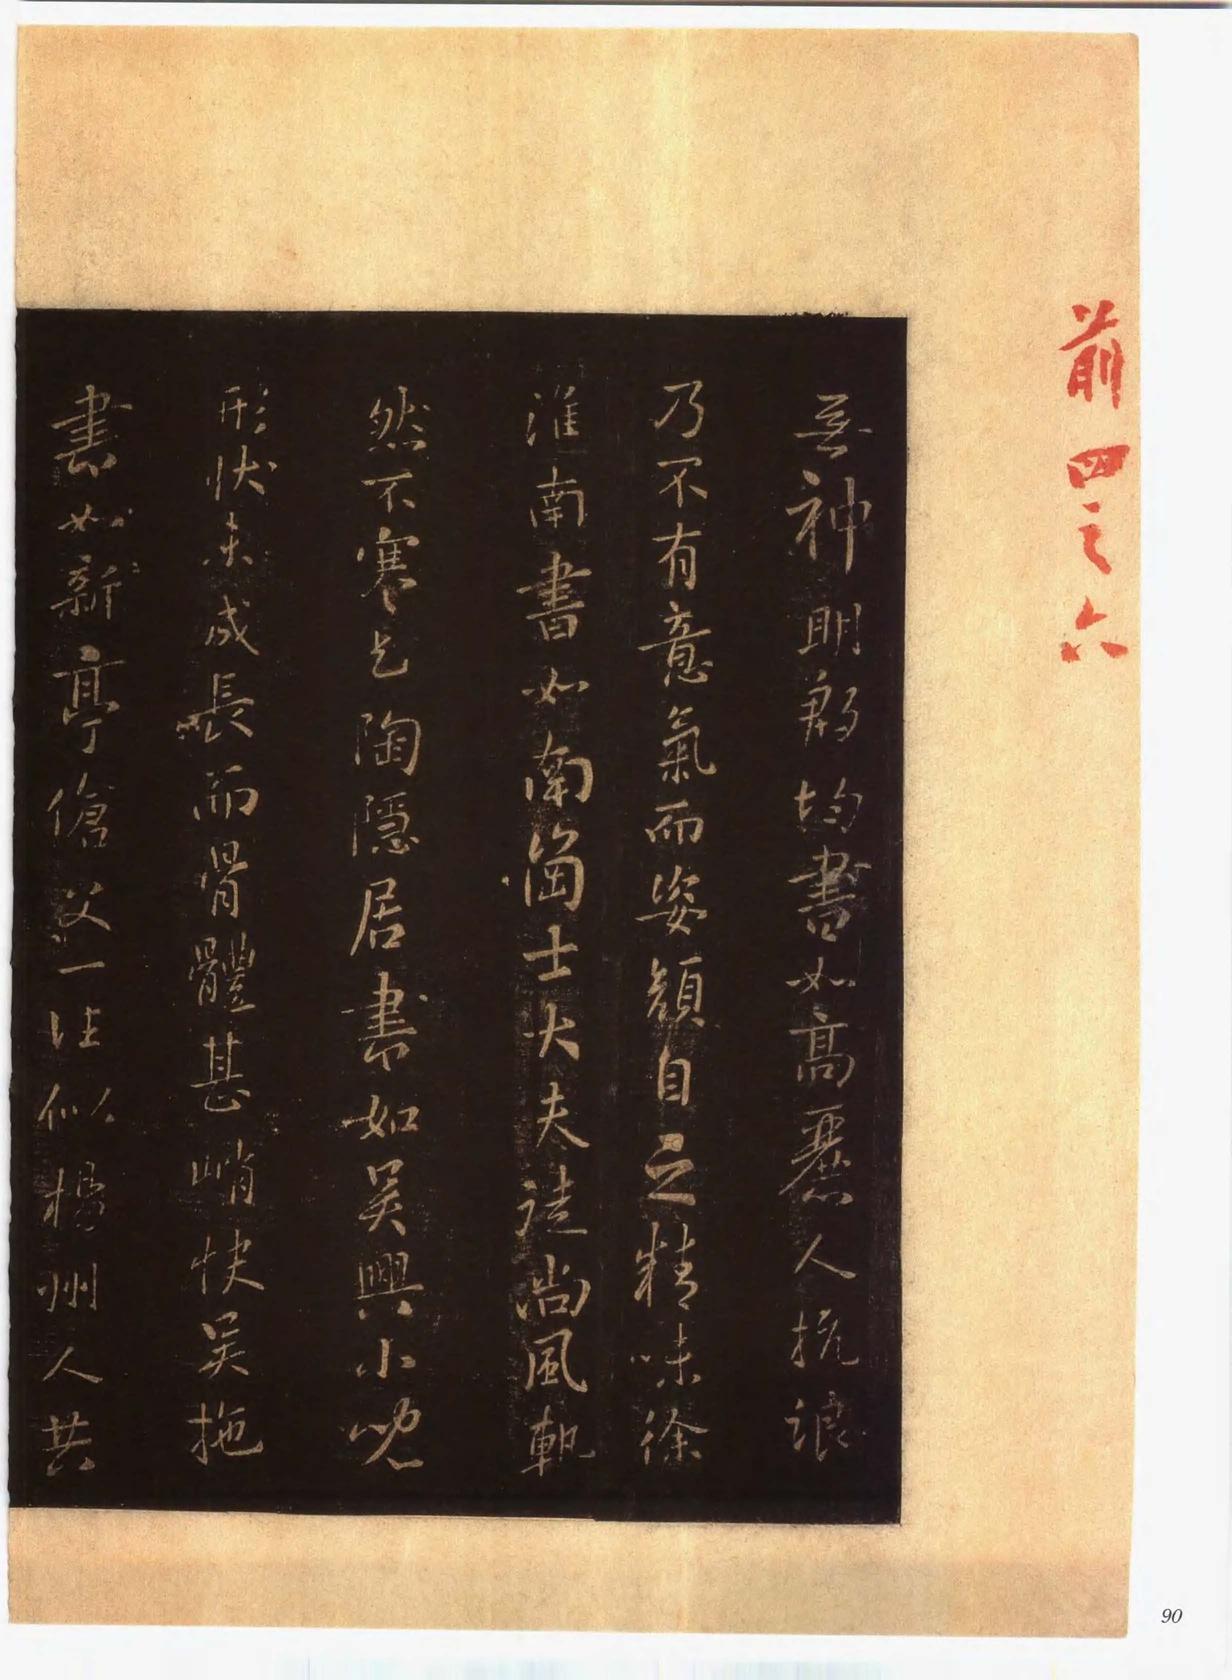 前四之六
無神明殷均書如高麗人抗浪
乃不有意氣而姿顔自之精味徐
淮南書如南岡士大夫徒尚風軌
然不寒乞陶隱居書如吴興小兒
形狀未成長而骨體甚峭快吴拖
書如新亭傖父一往似楊州人共
90